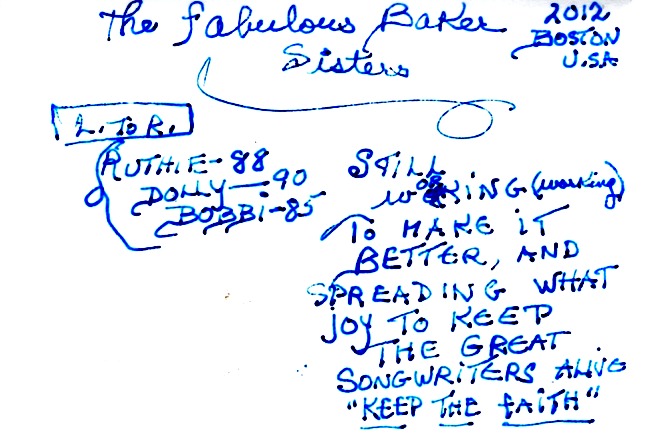 The fabulous Baker
Sisters
2012
BOSTON
U.S.A
L. TO R.
RUTHIE-88
DOLLY-90
BOBBI-85
STILL
WORKING (working)
TO MAKE IT
BETTER, AND
SPREADING WHAT
JOY TO KEEP
THE GREAT
SONGWRITERS ALIVE
"KEEP THE fAITH"